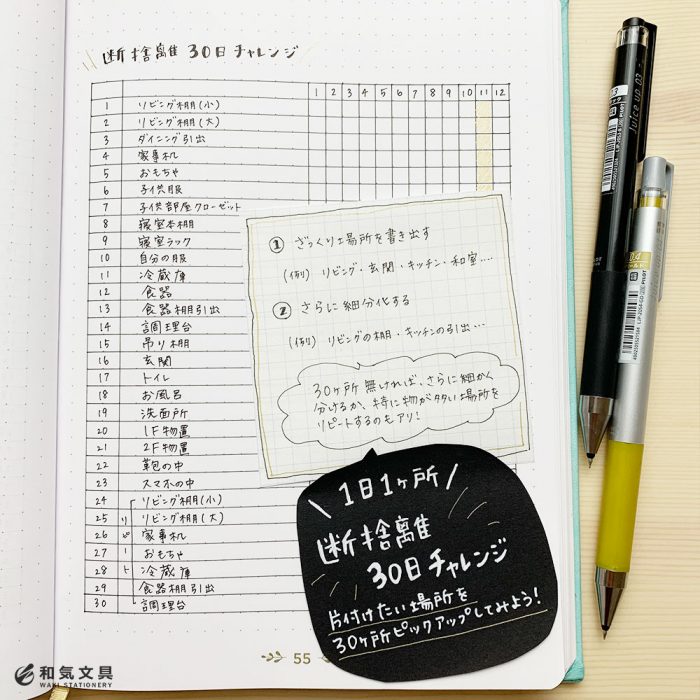 断捨離 30日チャレンジ
1 2 3 4 5 6 7 8 9 10 11 12
1 リビング棚(小)
2 リビング棚(大)
3 ダイニング引出
4 家事机
5 おもちゃ
6 子供服
7 子供部屋クローゼット
8 寝室本棚
9 寝室ラック
10 自分の服
11 冷蔵庫
12 食器
13 食器棚引出
14 調理台
15 吊り棚
16 玄関
17 トイレ
18 お風呂
19 洗面所
20 1F物置
21 2F物置
22 鞄の中
23 スマホの中
24 リビング棚(小)
25 リビング棚(大)
26 家事机
27 おもちゃ
28 冷蔵庫
29 食器棚引出
30 調理台
リピート
① ざっくり場所を書き出す
(例) リビング・玄関・キッチン・和室....
② さらに細分化する
(例) リビングの棚・キッチンの引出...
30ヶ所無ければ、さらに細かく
分けるか、特に物が多い場所を
リピートするのもアリ!
1日1ヶ所
断捨離
30日チャレンジ
片付けたい場所を
30ヶ所ピックアップしてみよう!
55
Juice up 03
0.4
PILOT
和気文具
WAKI STATIONERY